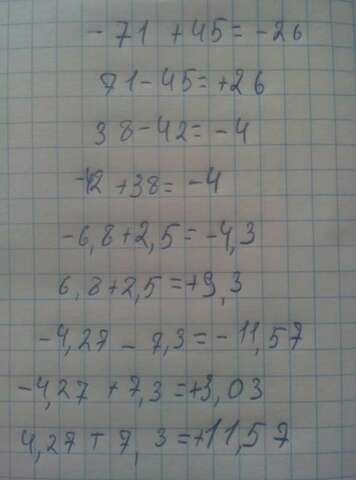 -71 +45= -26
71-45= +26
38-42= -4
-42 +38= -4
-6,8+2,5= -4,3
6,8+2,5=+9,3
-4,27 - 7,3= -11,57
-4,27 +7,3=+3,03
4,27+7,3=+11,57